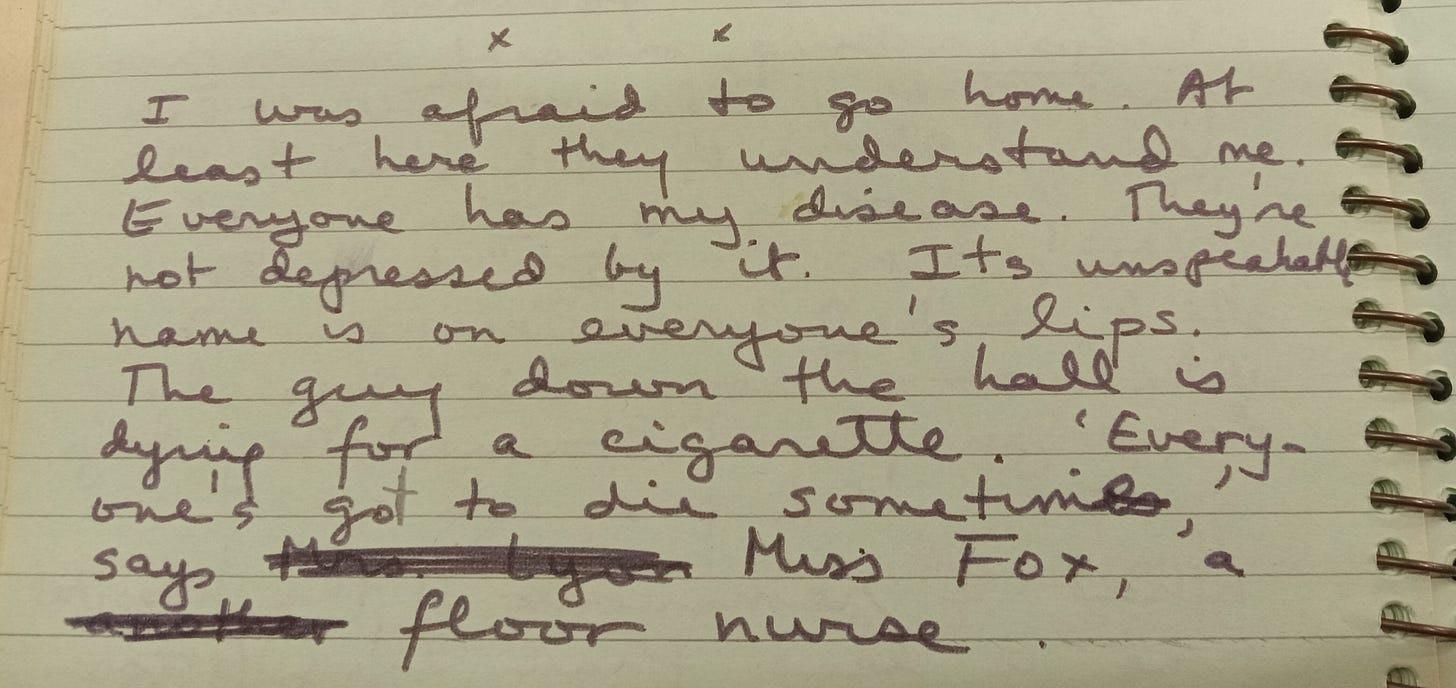 x x
I was afraid to go home. At
least here they understand me.
Everyone has my disease. They're
not depressed by it. Its unspeakable
name is on everyone's lips.
The guy down the hall is
dying for a cigarette. 'Every-
one's got to die sometime,'
says Miss Fox, a
floor nurse.